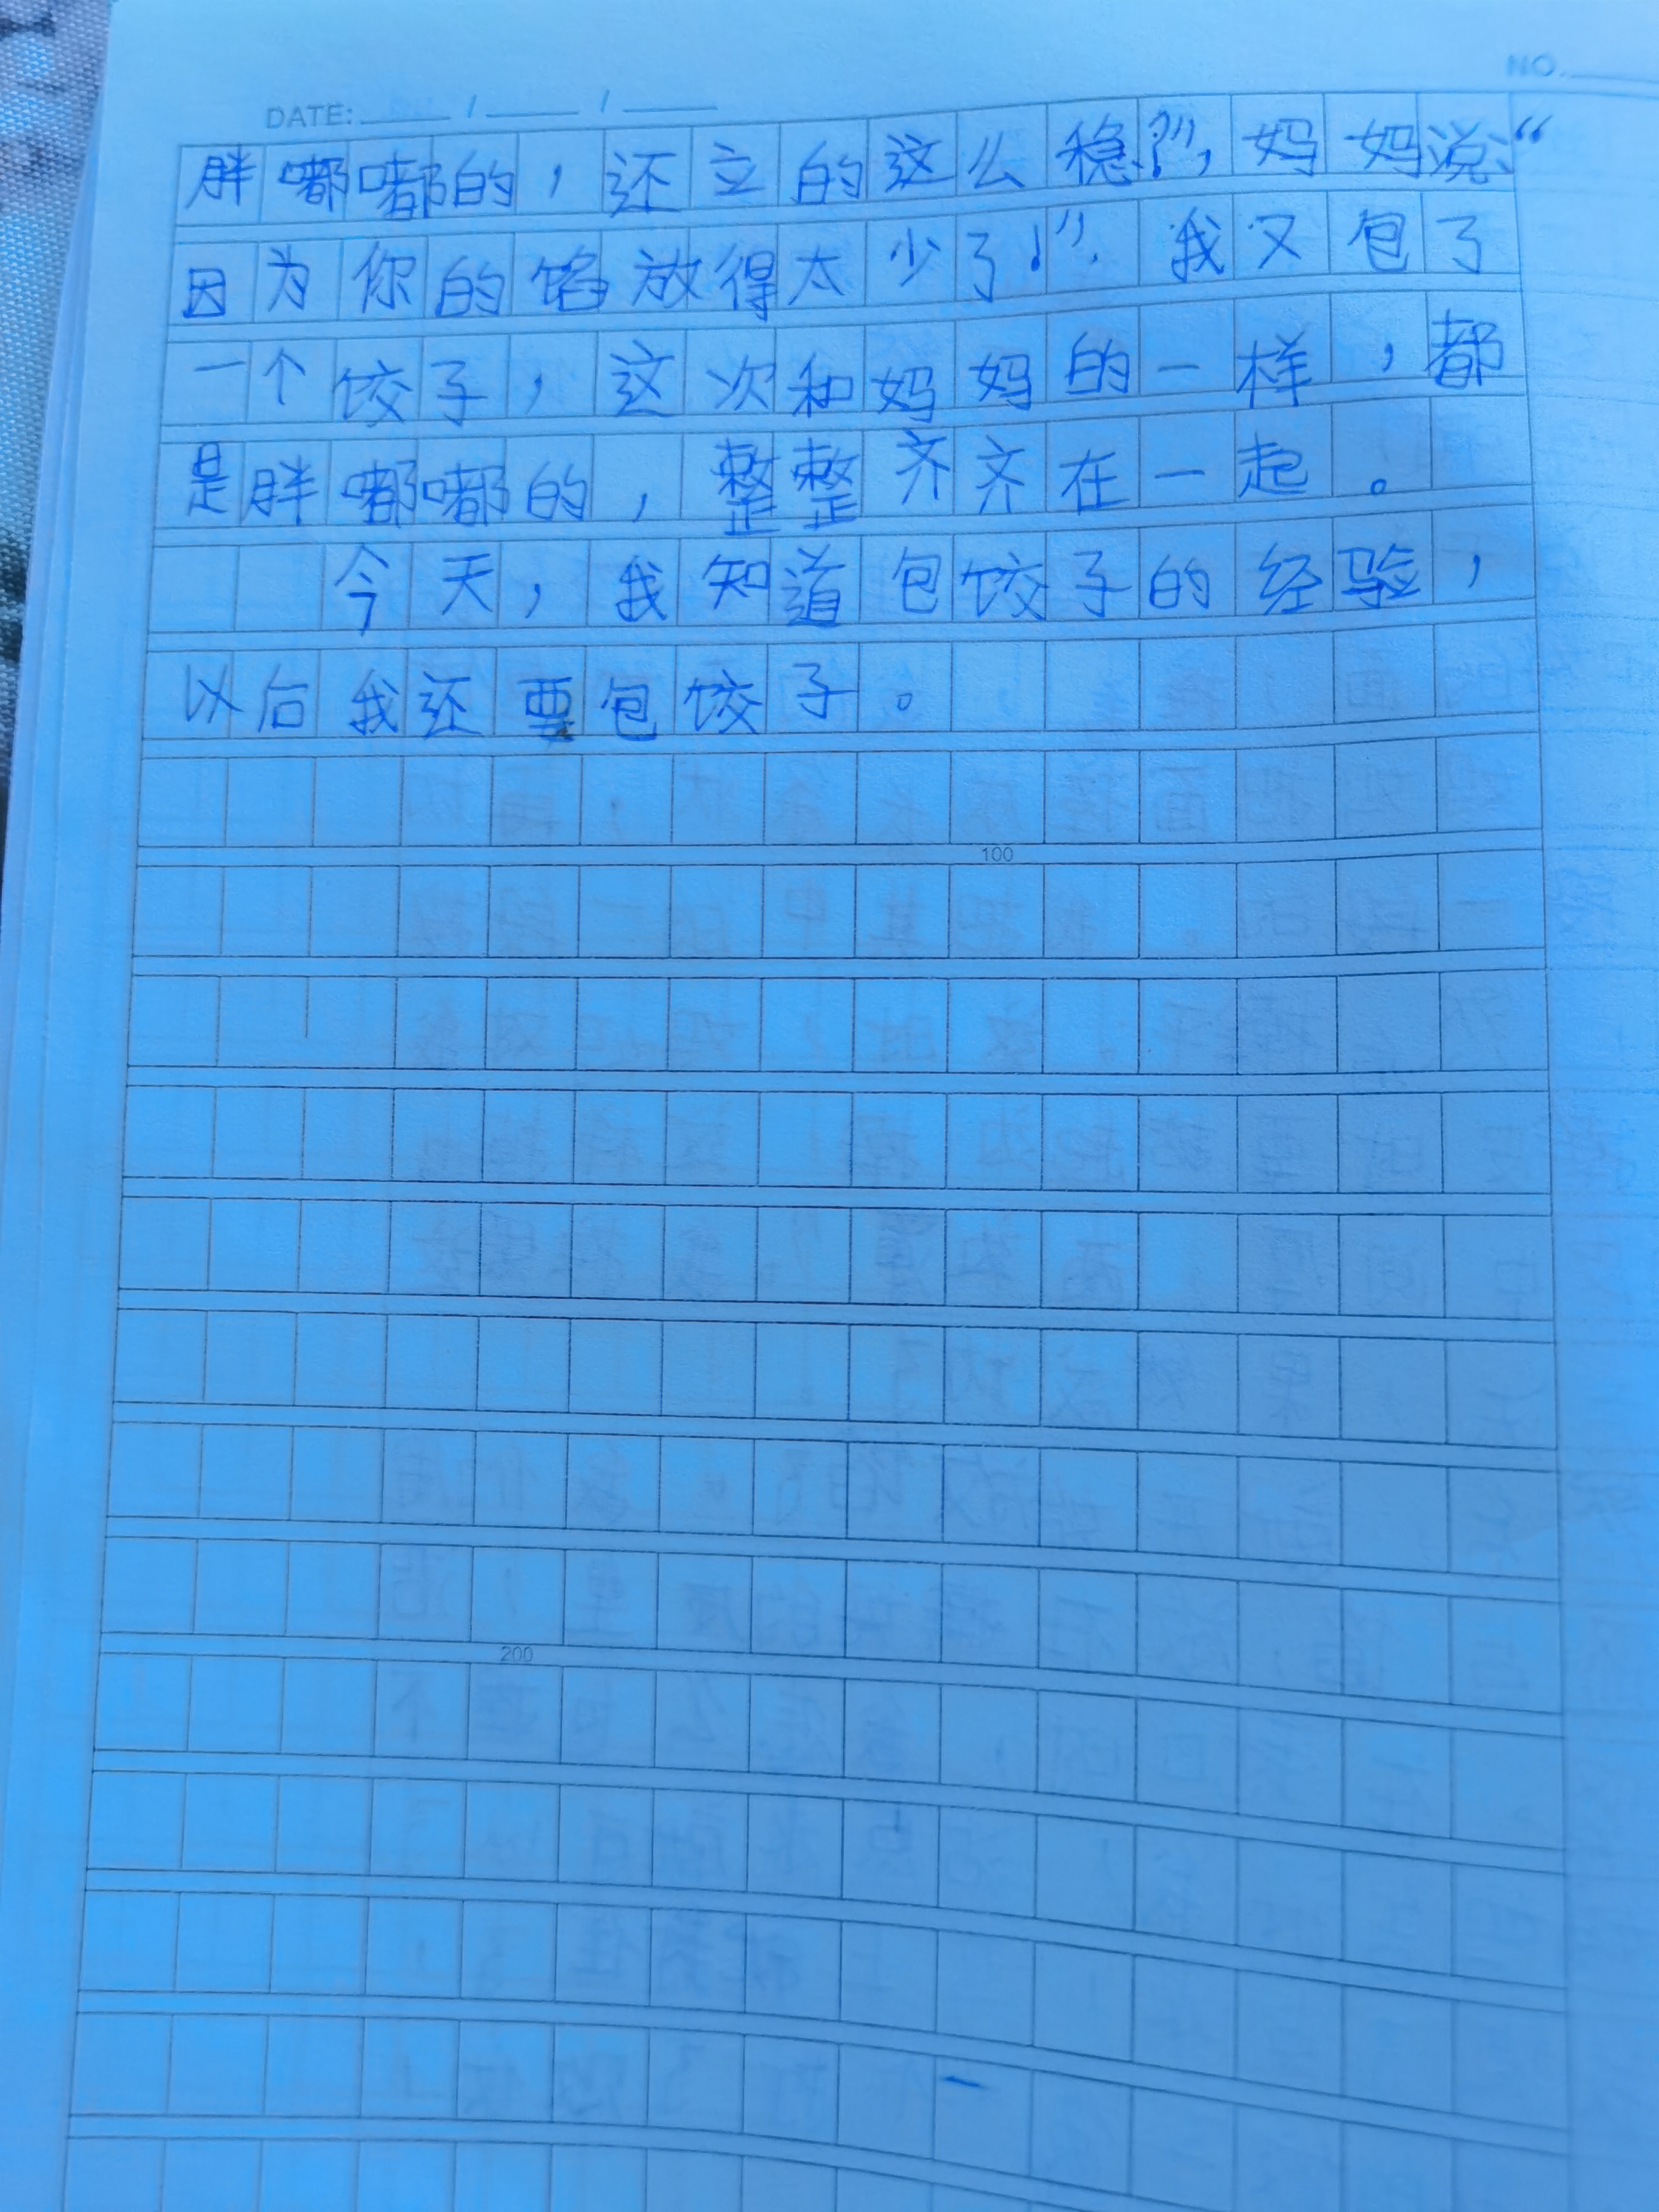 NO.
DATE: / /
胖嘟嘟的，还立的这么稳？”，妈妈说：“
因为你的馅放得太少了！”. 我又包了
一个饺子，这次和妈妈的一样，都
是胖嘟嘟的，整整齐齐在一起。
今天，我知道包饺子的经验，
以后我还要包饺子。
100
200